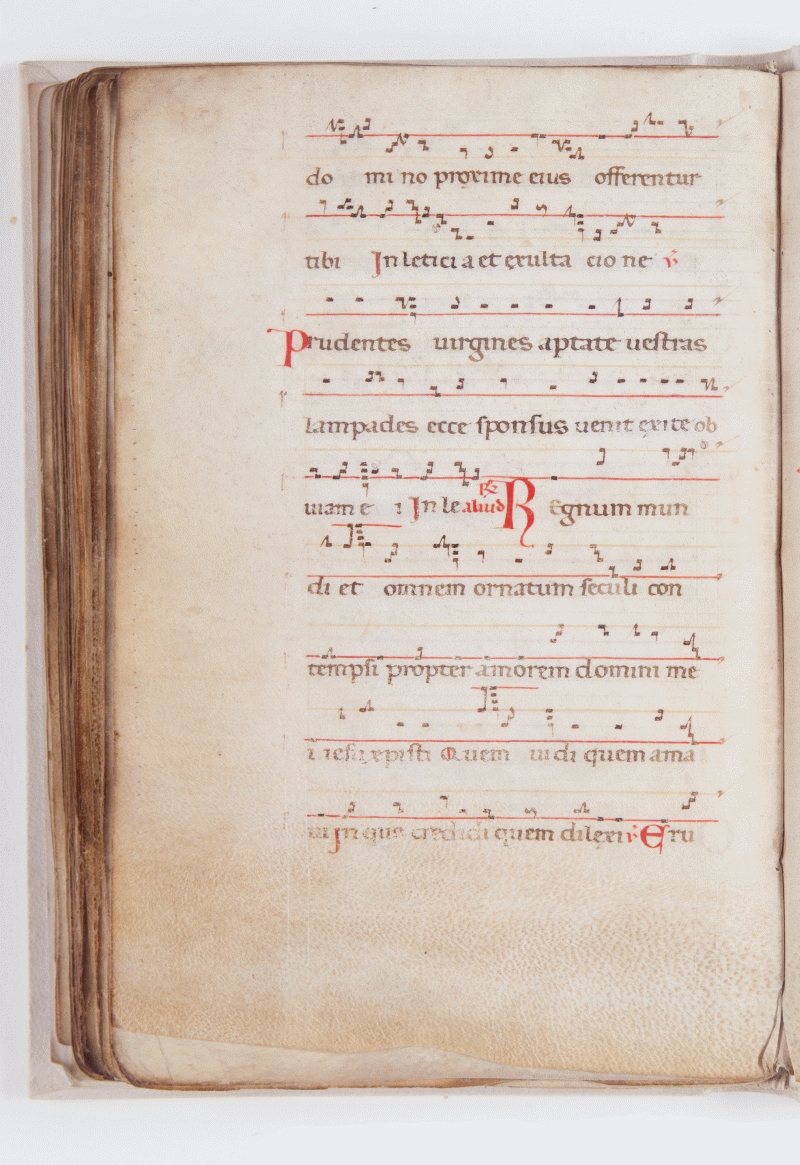 do mi no proxime eius offerentur
tibi In leticia et exulta cio ne ℣
Prudentes uirgines aptate uestras
lampades ecce sponsus uenit exite ob
uiam e i In le aliud R̷ Regnum mun
di et omnem ornatum seculi con
tempsi propter amorem domini me
i iesu xpisti Quem uidi quem ama
ui In que credidi quem dilexi ℣ Eru